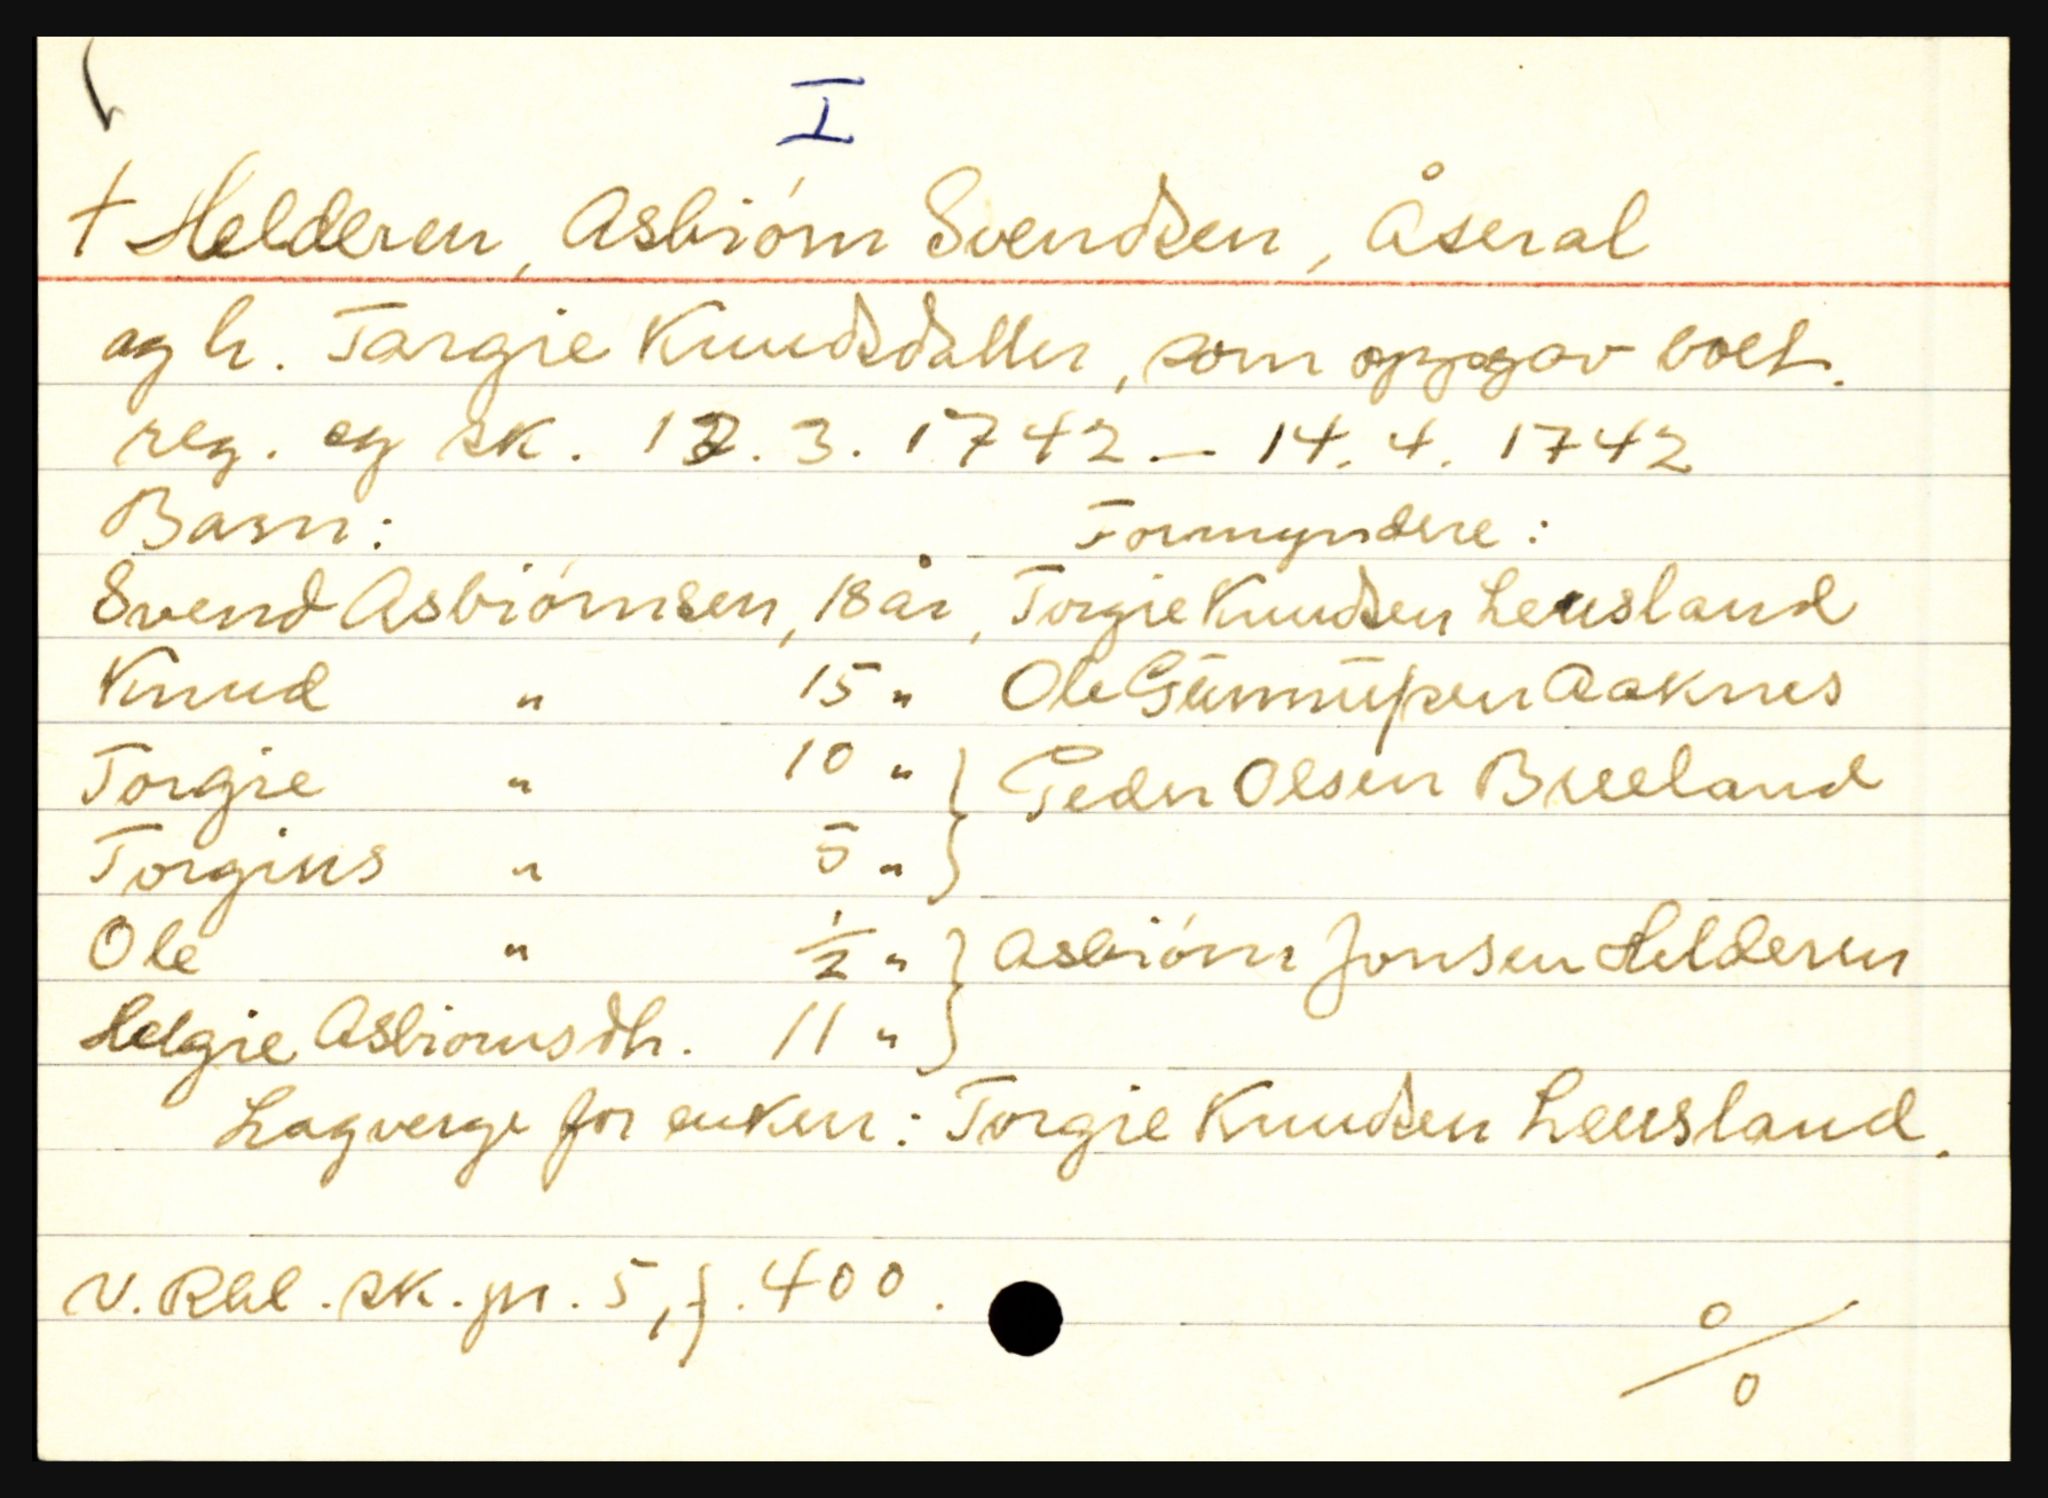 I
† Helderen, Asbiørn Svendsen, Åseral
og h. Targie Knudsdatter, som oppgav boet.
reg. og sk. 12.3.1742 – 14.4.1742
Barn: Formyndere:
Svend Asbiørnsen, 18 år, Torgie Knudsen Leusland
Knud " 15 " Ole Gunnufsen Aaknes
Torgie " 10 " } Peder Olsen Breeland
Torgius " 5 " }
Ole " ½ " } Asbiørn Jonsen Helderen
Helgie Asbiornsdtr. 11 " }
Lagverge for enken: Torgie Knudsen Leusland.
N. Rbl. sk. pr. 5, f. 400.
o/o